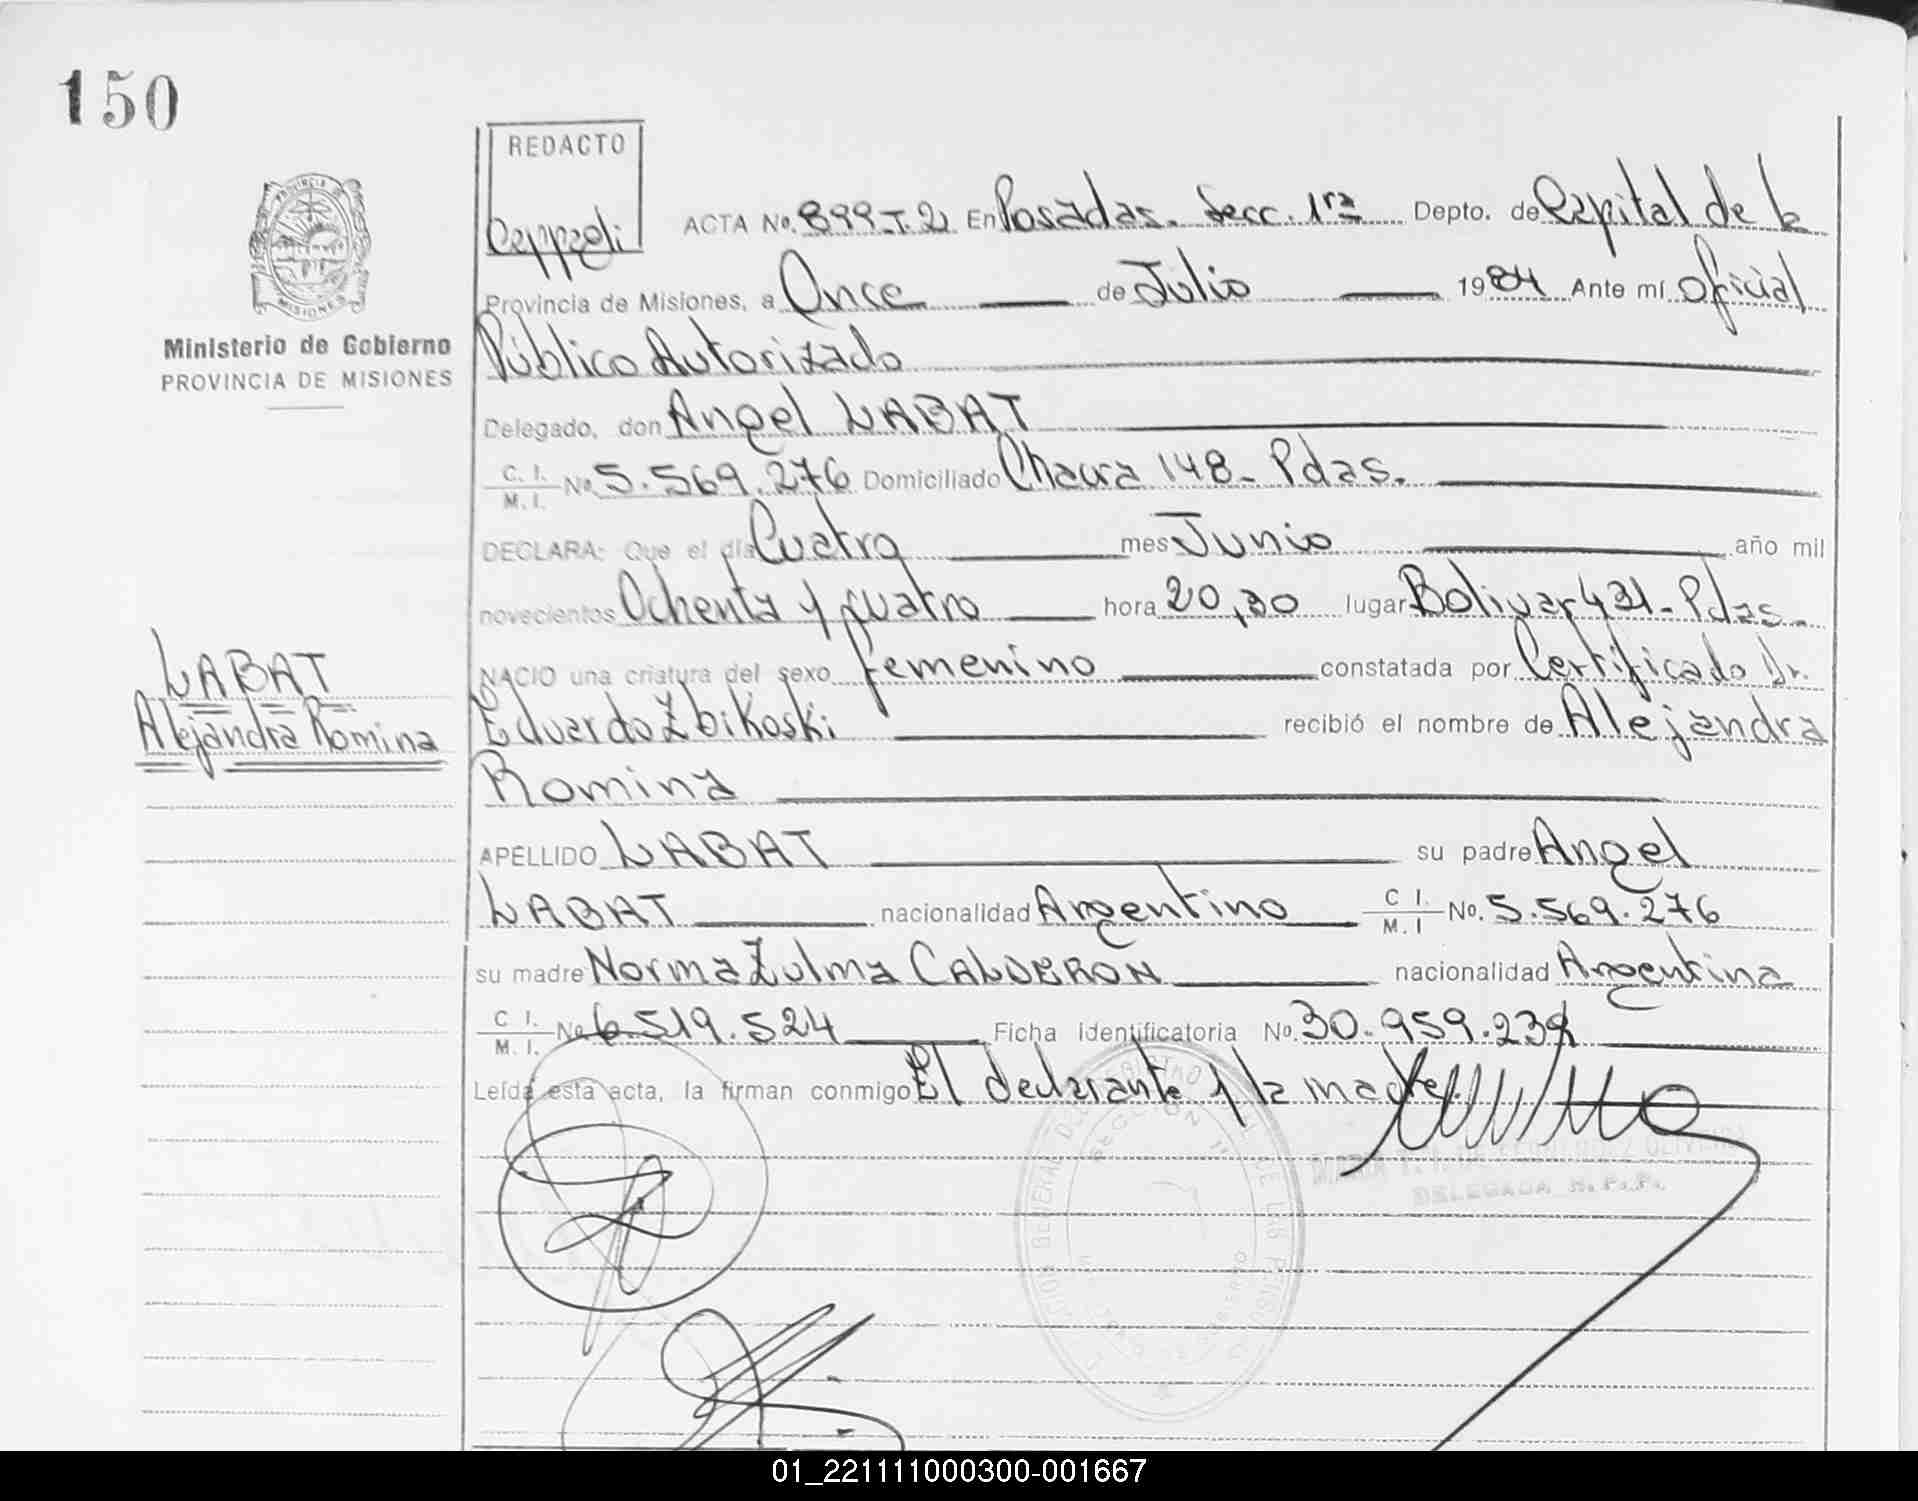 150
REDACTO
ACTA No. 899-T.2 En Posadas. Secc. 1ra Depto. de Capital de la
Provincia de Misiones, a Once de Julio 1984 Ante mí Oficial
Ministerio de Gobierno
PROVINCIA DE MISIONES
Público Autorizado
Delegado, don Angel LABAT
C. I.
M. I. No. 5.569.276 Domiciliado 148- Pdas.
DECLARA: Que el día Cuatro mes Junio año mil
novecientos Ochenta y cuatro hora 20,30 lugar Bolivar 431- Pdas.
NACIO una criatura del sexo femenino constatada por Certificado Dr.
LABAT
Alejandra Romina
Eduardo Zbikoski recibió el nombre de Alejandra
Romina
APELLIDO LABAT su padre Angel
LABAT nacionalidad Argentino C I.
M. I No. 5.569.276
su madre Norma Zulma CALDERON nacionalidad Argentina
C I.
M. I. No 6.519.524 Ficha identificatoria No. 30.959.239
Leída esta acta, la firman conmigo El declarante y la madre.
DELEGADA R.P.P.
01_221111000300-001667